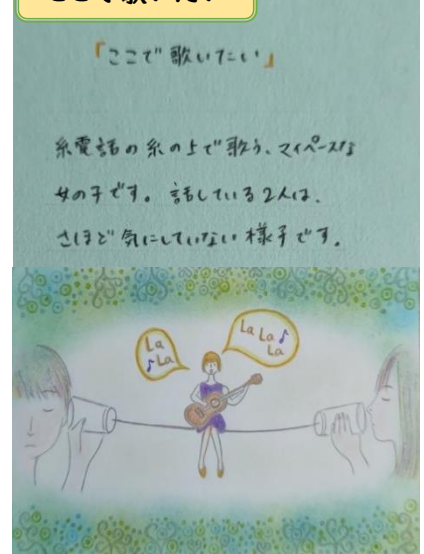 「ここで歌いたい」
糸電話の糸の上で歌う、マイペースな
女の子です。話している2人は、
さほど気にしていない様子です。
La
♪La
La La♪
La